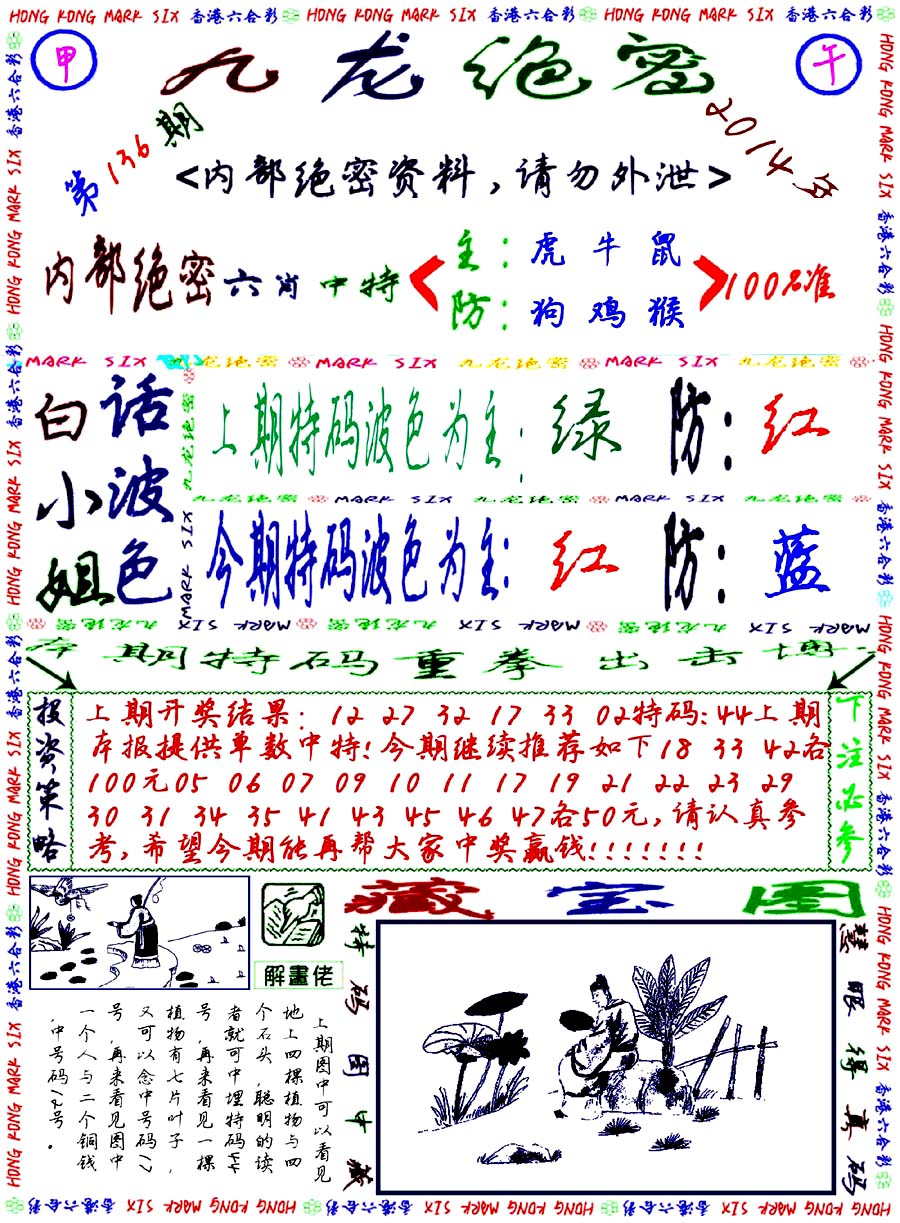 HONG KONG MARK SIX 香港六合彩 HONG KONG MARK SIX 香港六合彩 HONG KONG MARK SIX 香港六合彩
甲
九龙绝密
午
第136期
2014年
<内部绝密资料,请勿外泄>
内部绝密六肖中特
主:虎牛鼠
防:狗鸡猴
100%准
MARK SIX 九龙绝密 MARK SIX 九龙绝密 MARK SIX 九龙绝密
白小姐
话波色
九龙绝密 MARK SIX
上期特码波色为主:绿 防:红
九龙绝密 MARK SIX 九龙绝密 MARK SIX 九龙绝密
今期特码波色为主:红 防:蓝
九龙绝密 MARK SIX 九龙绝密 MARK SIX 九龙绝密 MARK SIX
本期特码重拳出击博
投资策略
上期开奖结果: 12 27 32 17 33 02特码:44上期
本报提供单数中特!今期继续推荐如下18 33 42各
100元05 06 07 09 10 11 17 19 21 22 23 29
30 31 34 35 41 43 45 46 47各50元,请认真参
考,希望今期能再帮大家中奖赢钱!!!!!!!
下注必参
藏宝图
解畫佬
上期图中可以看见
地上四棵植物与四
个石头,聪明的读
者就可中埋特码44
号,再来看见一棵
植物有七片叶子,
又可以念中号码17
号,再来看见图中
一个人与二个铜钱
,中号码12号。
特码图中藏
慧眼得真码
HONG KONG MARK SIX 香港六合彩 HONG KONG MARK SIX 香港六合彩 HONG KONG MARK SIX 香港六合彩